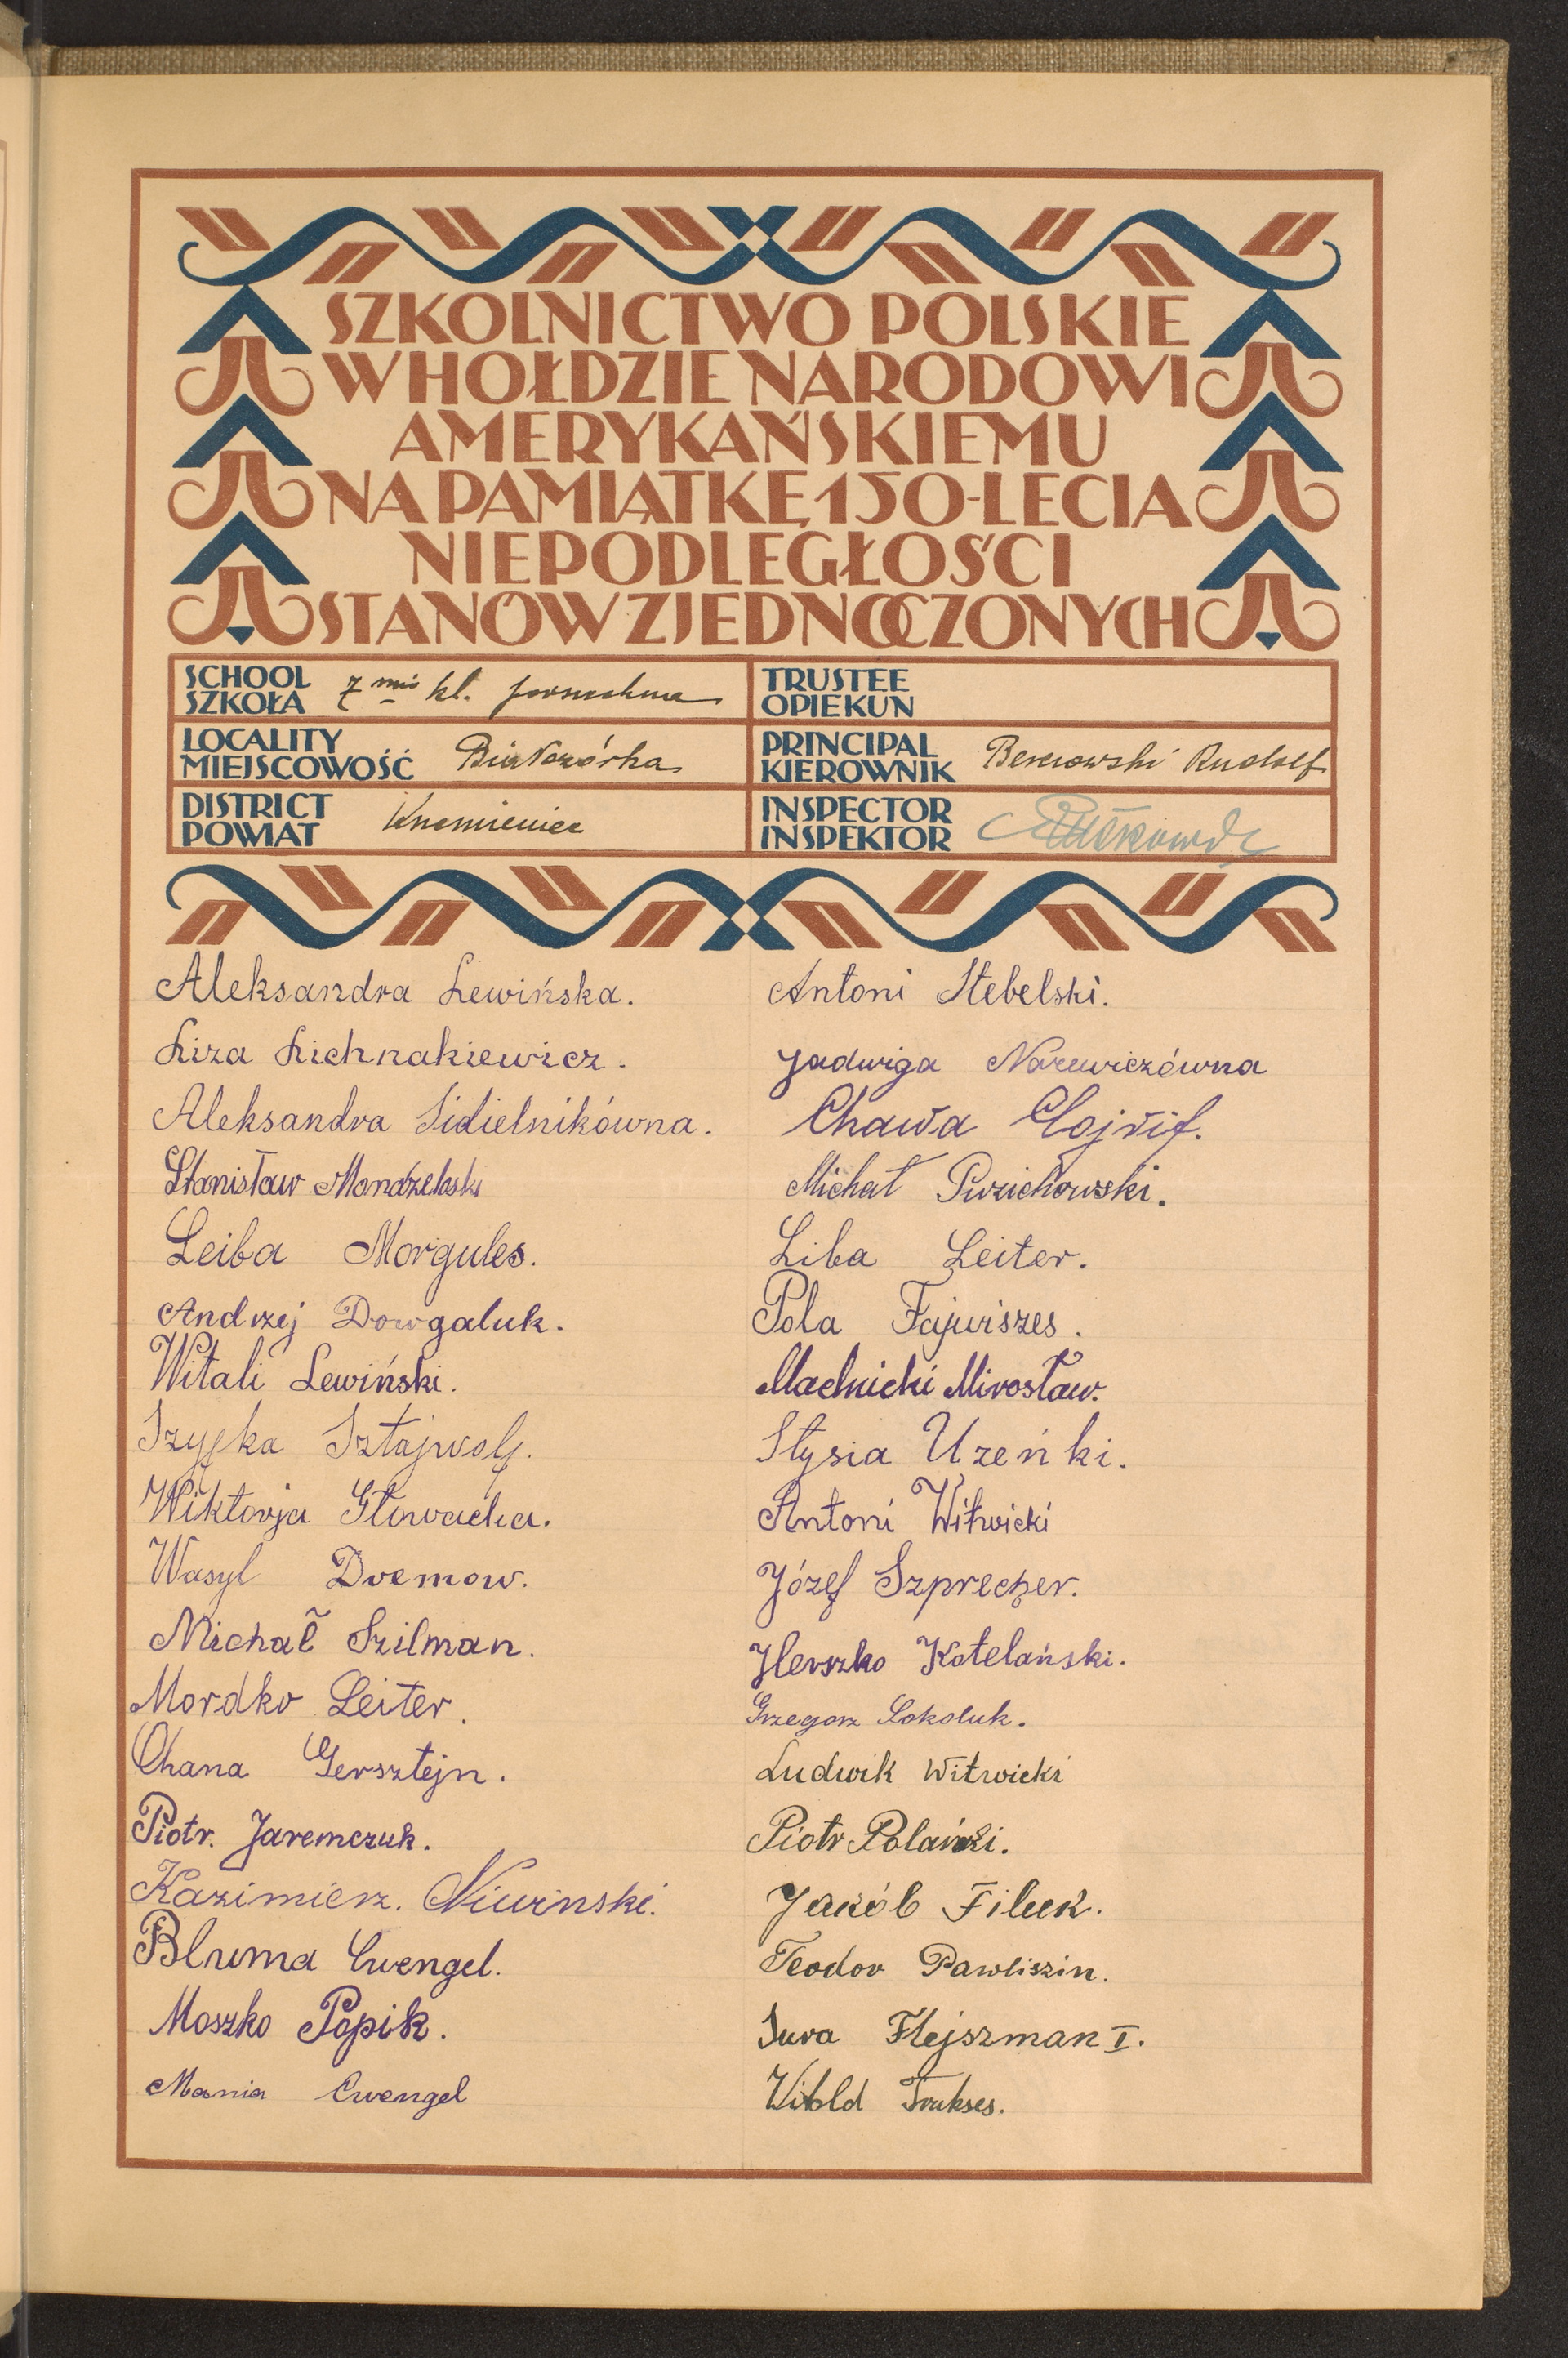 SZKOLNICTWO POLSKIE
W HOŁDZIE NARODOWI
AMERYKAŃSKIEMU
NA PAMIĄTKĘ 150-LECIA
NIEPODLEGŁOŚCI
STANÓW ZJEDNOCZONYCH
SCHOOL
SZKOŁA 7 mio kl. powszechna
TRUSTEE
OPIEKUN
LOCALITY
MIEJSCOWOŚĆ Białozórka
PRINCIPAL
KIEROWNIK Rudolf
DISTRICT
POWIAT Krzemieniec
INSPECTOR
INSPEKTOR
Aleksandra Lewińska.
Liza Lichnakiewicz.
Aleksandra Sidielnikówna.
Stanisław Mondzelski
Leiba Morgules.
Andrzej Dowgaluk.
Witali Lewiński.
Szyfka Sztajwolf.
Wiktorja Głowacka.
Wasyl Dremow.
Michał Szilman.
Mordko Leiter.
Chana Gersztejn.
Piotr. Jaremczuk.
Kazimierz. Niwinski.
Bluma Cwengel.
Moszko Popik.
Mania Cwengel
Antoni Stebelski.
Jadwiga Narewiczówna
Chawa
Michał Pwzichowski.
Liba Leiter.
Pola Fajwiszes.
Machnicki Mirosław.
Stysia Uzeńki.
Antoni Witwicki
Józef Szprecher.
Herszko Kotelański.
Grzegorz Sokoluk.
Ludwik Witwicki
Piotr Polański.
Jakób Filuk.
Teodor Pawliszin.
Sura Flejszman I.
Witold Trukses.